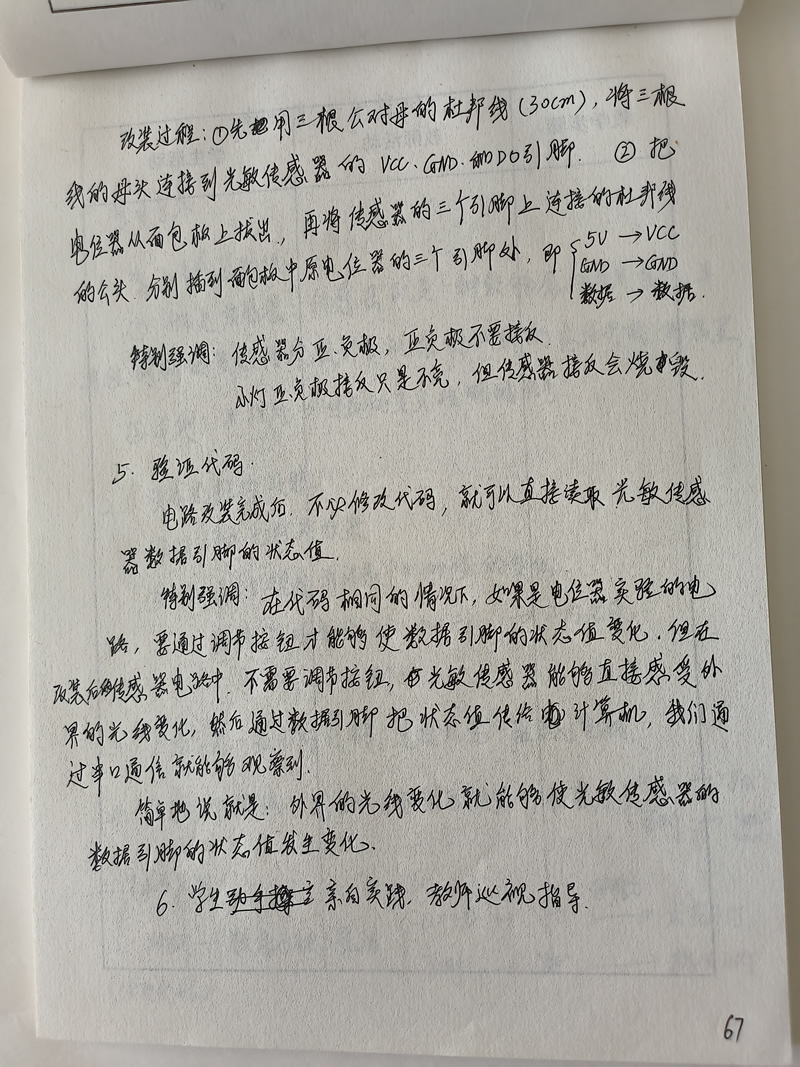 改装过程：①先用三根公对母的杜邦线(30cm)，将三根
线的母头连接到光敏传感器的VCC、GND、和DO引脚. ②把
电位器从面包板上拔出，再将传感器的三个引脚上连接的杜邦线
的公头.分别插到面包板中原电位器的三个引脚处，即 5V→VCC
GND→GND
数据→数据.
特别强调：传感器分正、负极，正负极不要接反.
小灯正负极接反只是不亮，但传感器接反会烧毁.
5. 验证代码.
电路改装完成后.不必修改代码，就可以直接读取光敏传感
器数据引脚的状态值.
特别强调：在代码相同的情况下，如果是电位器实验的电
路，要通过调节按钮才能够使数据引脚的状态值变化.但在
改装后的传感器电路中.不需要调节按钮，光敏传感器能够直接感受外
界的光线变化，然后通过数据引脚把状态值传给计算机，我们通
过串口通信就能够观察到.
简单地说就是：外界的光线变化就能够使光敏传感器的
数据引脚的状态值发生变化.
6. 学生亲自实践.教师巡视指导.
67